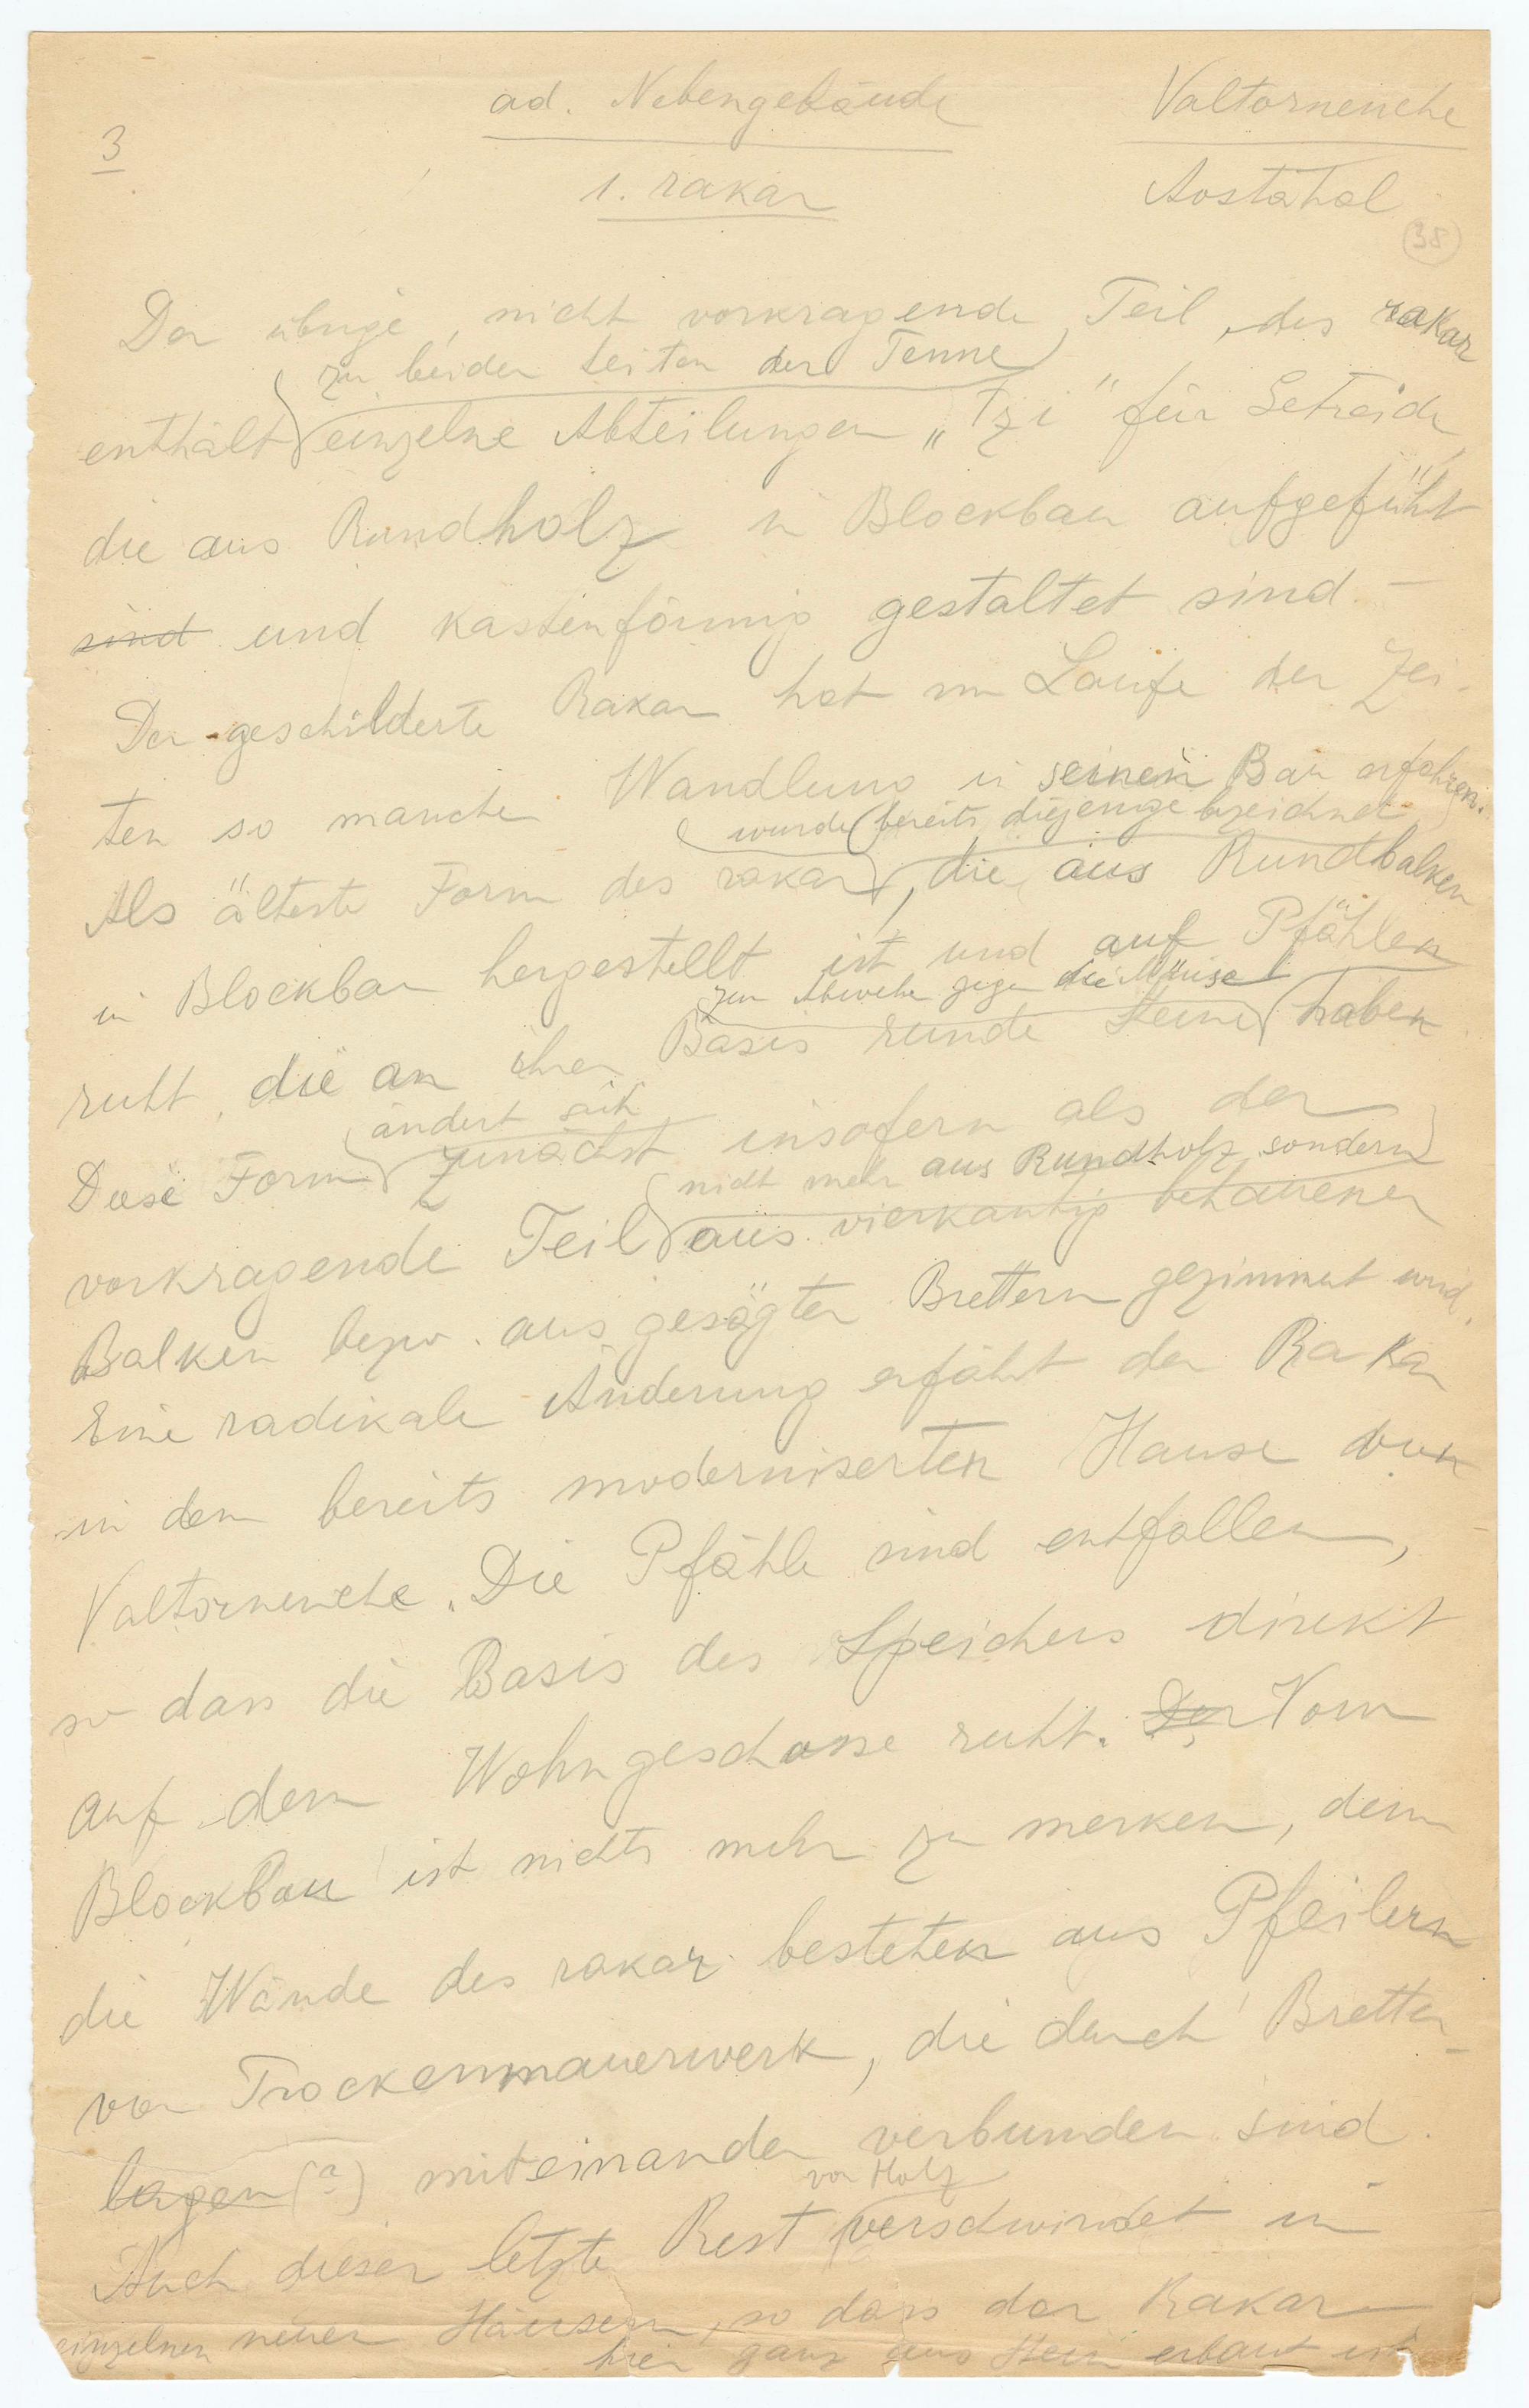 3
ad. Nebengebäude
Valtornenche
1. rakar
Aostatal
38
Der übrige, nicht vorkragende Teil, des rakar
zu beiden Seiten der Tenne
enthält einzelne Abteilungen „Tzi" für Getreide,
die aus Rundholz in Blockbau aufgeführt
sind und kastenförmig gestaltet sind. –
Der geschilderte Rakar hat im Laufe der Zei-
ten so manche Wandlung in seinem Bau erfahren.
wurde bereits diejenige bezeichnet
Als älteste Form des rakar, die aus Rundbalken
in Blockbau hergestellt ist und auf Pfählen
zur Abwehr gegen die Mäuse
ruht, die an ihrer Basis runde Steine haben
ändert sich
Diese Form zunächst insofern als der
nicht mehr aus Rundholz sondern
vorkragende Teil aus vierkantig behauenen
Balken bezw. aus gesägten Brettern gezimmert wird.
Eine radikale Änderung erfährt der Rakar
in dem bereits modernisierten Hause von
Valtornenche. Die Pfähle sind entfallen,
so dass die Basis des Speichers direkt
auf dem Wohngeschosse ruht. Der Vom
Blockbau ist nichts mehr zu merken, denn
die Wände des rakar bestehen aus Pfeilern
von Trockenmauerwerk, die durch Bretter-
lagen (?) miteinander verbunden sind.
von Holz
Auch dieser letzte Rest verschwindet in
einzelnen neuen Häusern, so dass der Rakar
hier ganz aus Stein erbaut ist